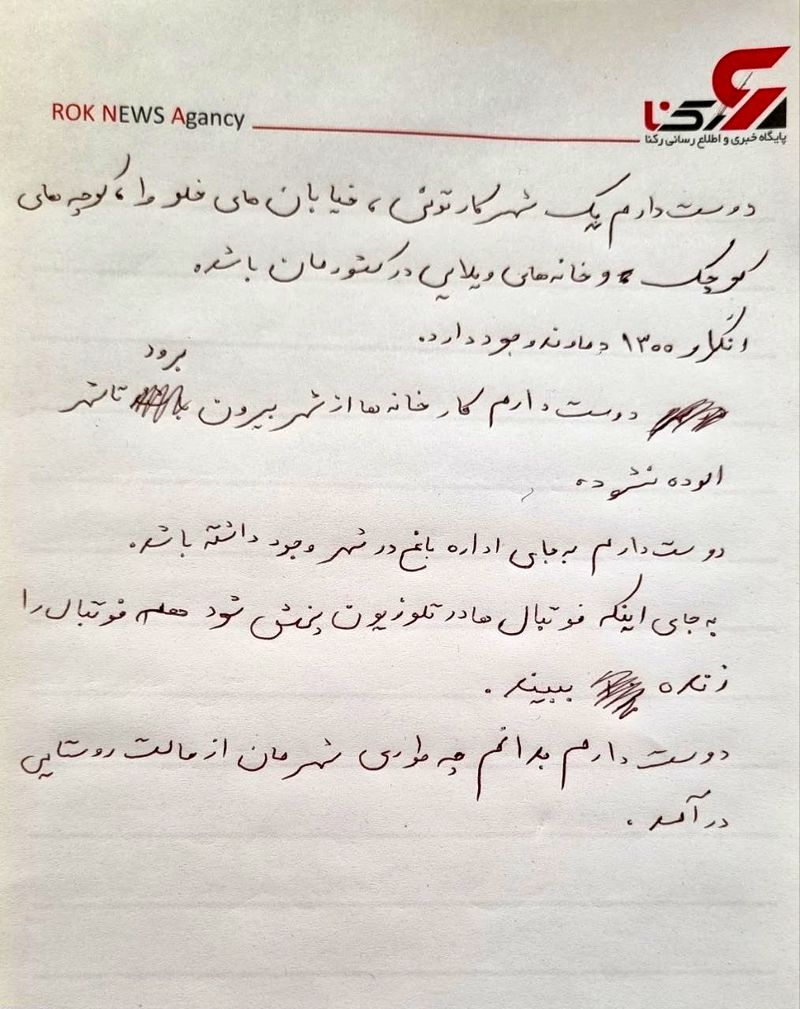 ROK NEWS Agancy
رکنا
پایگاه خبری و اطلاع رسانی رکنا
دوست دارم یک شهر کارتونی، خیابان های خلوط، کوچه های
کوچک و خانه های ویلایی در کشورمان باشد.
۱۳۰۰ دماوند وجود دارد.
برود
دوست دارم کارخانه ها از شهر بیرون تا شهر
الوده نشود.
دوست دارم به جای اداره باغ در شهر وجود داشته باشد.
به جای اینکه فوتبال ها در تلوزیون پخش شود همه فوتبال را
زنده ببیند.
دوست دارم بدانم چه طوری شهرمان از حالت روستایی
در آمد.